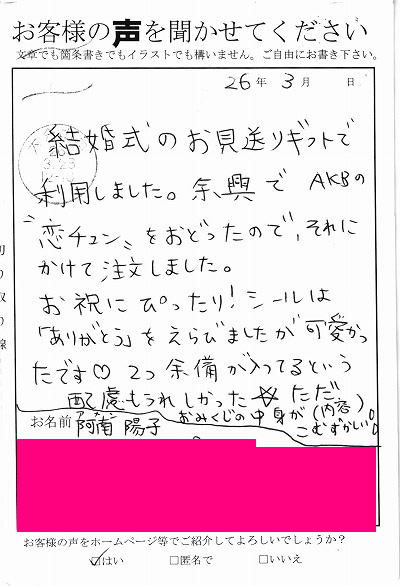 お客様の声を聞かせてください
文章でも箇条書きでもイラストでも構いません。ご自由にお書き下さい。
26年 3月 日
結婚式のお見送りギフトで
利用しました。余興で AKBの
"恋チュン"をおどったので、それに
かけて注文しました。
お祝にぴったり!シールは
「ありがとう」をえらびましたが可愛かっ
たです♡ 2つ余備が入ってるという
配慮もうれしかった☆ ただ
おみくじの中身が(内容)
こむずかしい。
切り取り線
お名前 阿南 陽子
アナン
お客様の声をホームページ等でご紹介してよろしいでしょうか?
☑はい □匿名で □いいえ